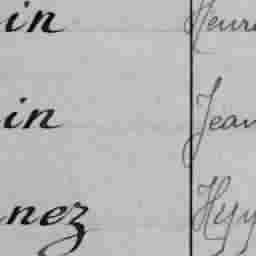 in Henri
in Jean
nez Hyp